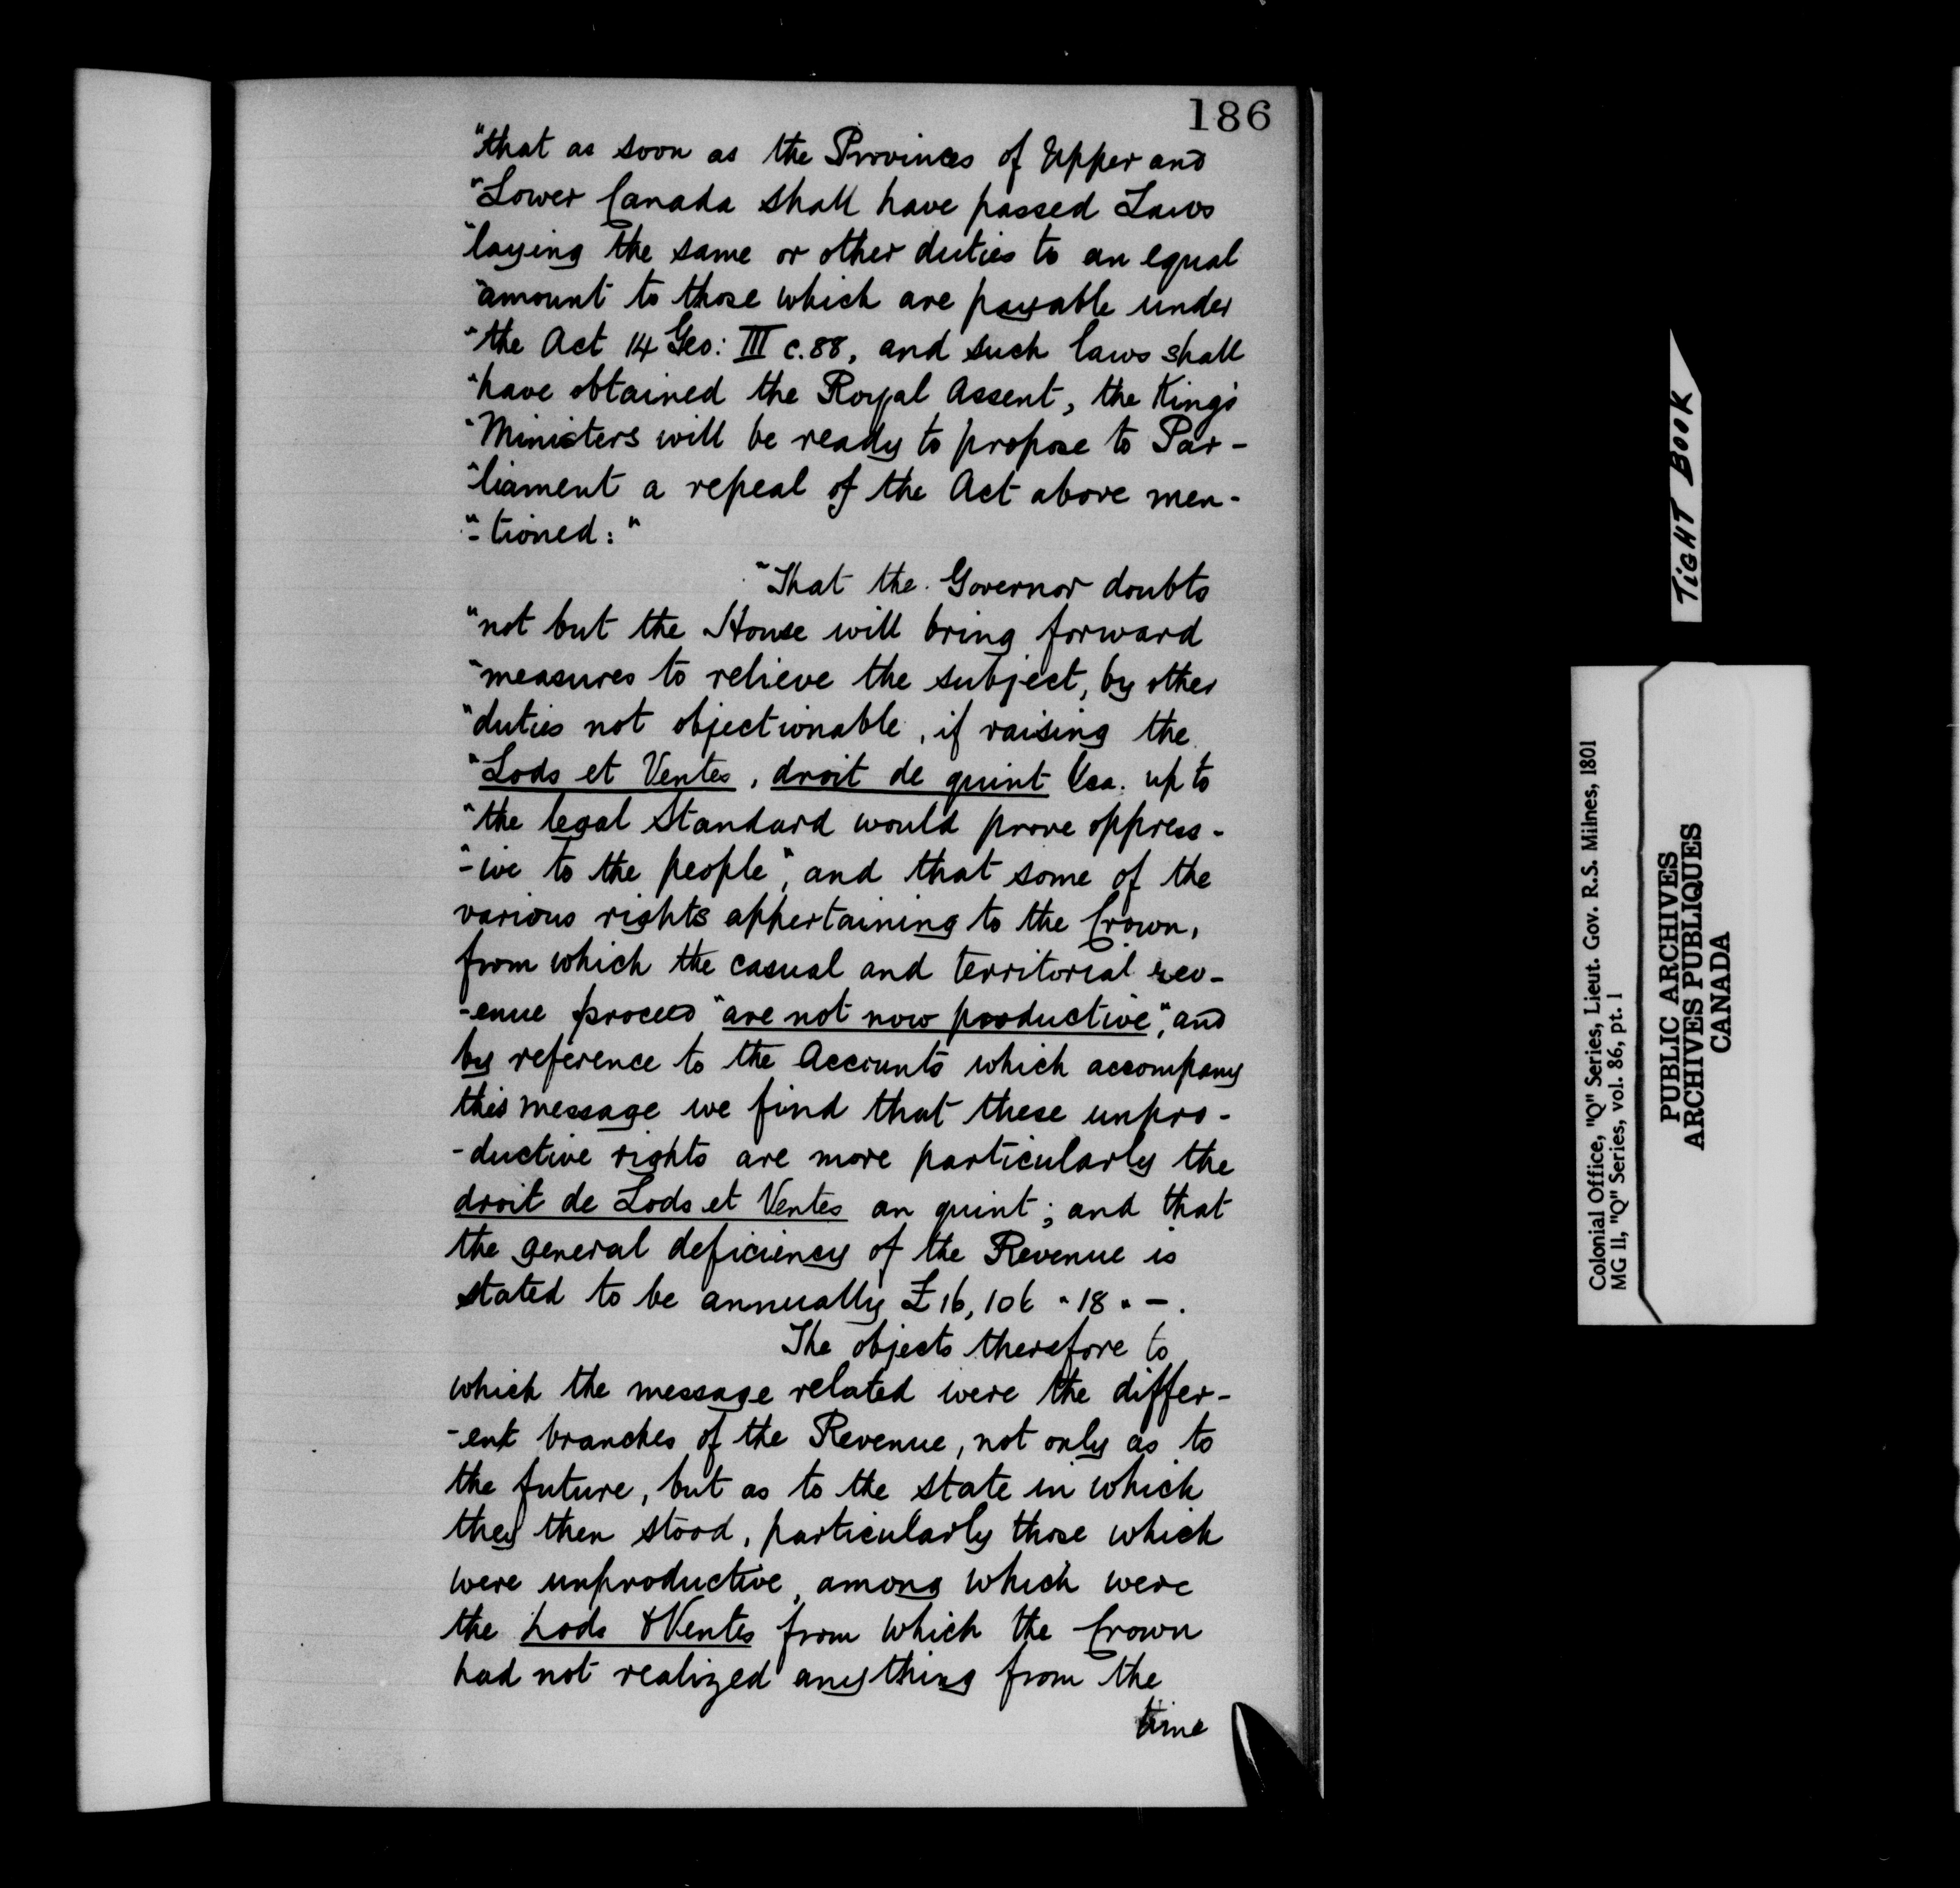 186
"that as soon as the Provinces of Upper and
"Lower Canada shall have passed Laws
"laying the same or other duties to an equal
"amount to those which are payable under
"the Act 14 Geo: III c.88, and such laws shall
"have obtained the Royal Assent, the King's
"Ministers will be ready to propose to Par-
"liament a repeal of the Act above men-
"-tioned:"
"That the Governor doubts
"not but the House will bring forward
"measures to relieve the subject, by other
"duties not objectionable, if raising the
"Lods et Ventes, droit de quint &ca. up to
"the legal Standard would prove oppress-
"-ive to the people", and that some of the
various rights appertaining to the Crown,
from which the casual and territorial rev-
-enue proceed "are not now productive", and
by reference to the Accounts which accompany
this message we find that these unpro-
-ductive rights are more particularly the
droit de Lods et Ventes an quint; and that
the general deficiency of the Revenue is
stated to be annually £16,106 " 18 " -.
The objects therefore to
which the message related were the differ-
-ent branches of the Revenue, not only as to
the future, but as to the state in which
they then stood, particularly those which
were unproductive, among which were
the Lods & Ventes from which the Crown
had not realized anything from the
time
TIGHT BOOK
Colonial Office, "Q" Series, Lieut. Gov. R.S. Milnes, 1801
MG 11, "Q" Series, vol. 86, pt. 1
PUBLIC ARCHIVES
ARCHIVES PUBLIQUES
CANADA